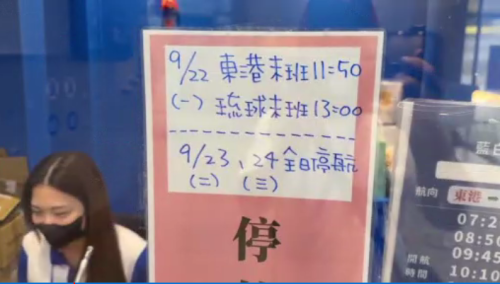 9/22 東港末班11:50
(一) 琉球末班13:00
9/23、24全日停航
(二) (三)
停
藍白
航向 東港
開航時間
07:2
08:50
09:45
10:10